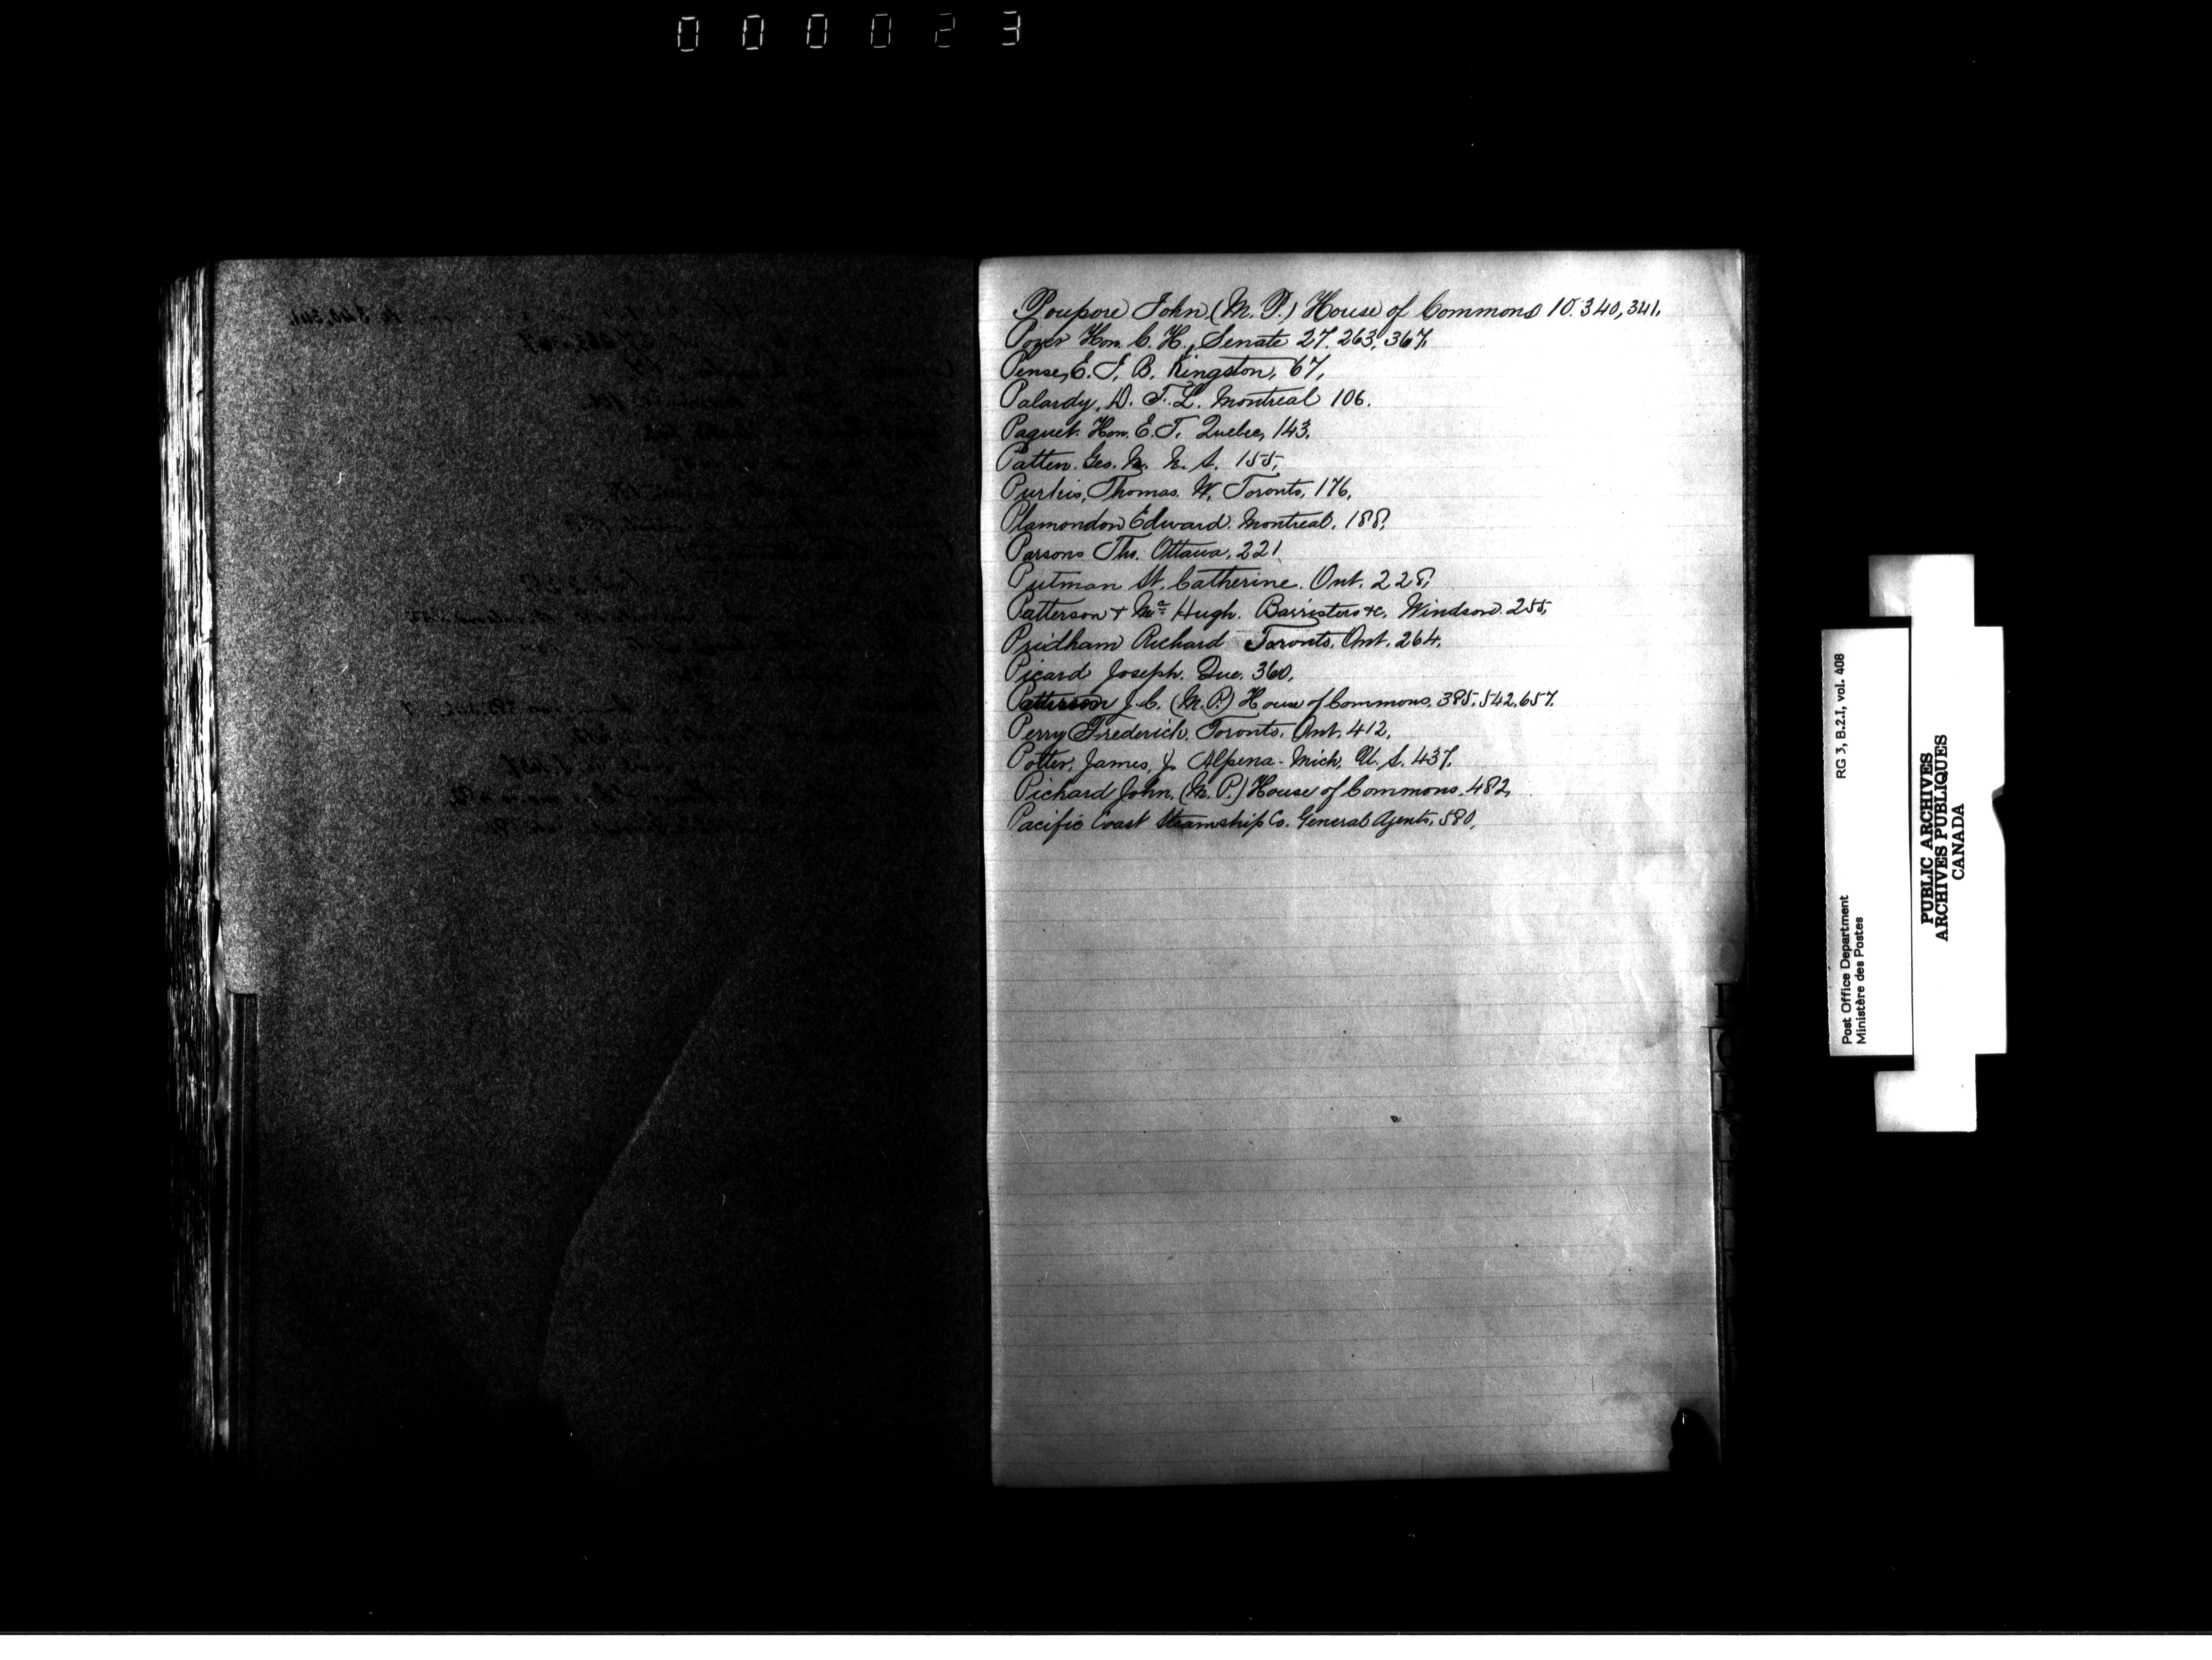 000023
Poupore John (M. P.) House of Commons 10. 340, 341.
Pozer Hon. C. H., Senate 27. 263, 367,
Pense, E. J. B. Kingston, 67,
Palardy, D. T. L. Montreal 106.
Paquet. Hon. E. T. Quebec, 143.
Patten. Geo. N. S. 155,
Purkis, Thomas. W. Toronto, 176,
Plamondon Edward. Montreal. 188,
Parsons Ths. Ottawa. 221
Putman St. Catherine. Ont. 228,
Patterson & Mc Hugh. Barristers &c. Windsor. 255,
Pridham Richard Toronto, Ont. 264.
Picard Joseph. Que. 360,
Patterson J. C. (M. P.) House of Commons. 385, 542, 657.
Perry Frederick, Toronto, Ont. 412,
Potter, James, J. Alpena. Mich, U. S. 437.
Pichard John. (M. P.) House of Commons. 482,
Pacific Coast Steamship Co. General Agents, 580,
RG 3, B.2.I, vol. 408
Post Office Department
Ministère des Postes
PUBLIC ARCHIVES
ARCHIVES PUBLIQUES
CANADA